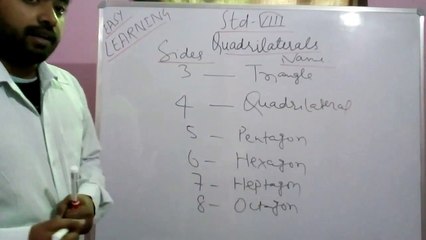 EASY
LEARNING
Std-VIII
Quadrilaterals
Sides Name
3 — Triangle
4 — Quadrilateral
5 — Pentagon
6 — Hexagon
7 — Heptagon
8 — Octagon